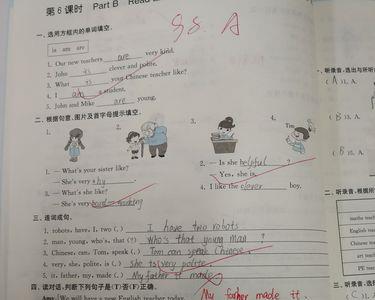 第 6 课时 Part B Read
98 A
一、选用方框内的单词填空。
in am are
1. Our new teachers are very kind.
2. John is clever and polite.
3. What is your Chinese teacher like?
4. I am a student.
5. John and Mike are young.
二、根据句意、图片及首字母提示填空。
1. 2. 3. 4. Tim
1. — What's your sister like?
— She's very shy
2. — Is she helpful ?
Yes, she is.
3. — What's she like?
— She's very hard-working
4. I like the clever boy.
三、连词成句。
1. robots, have, I, two (.) I have two robots
2. man, young, who's, that (?) Who's that young man ?
3. Chinese, can, Tom, speak (.) Tom can speak Chinese.
4. very, she, polite, is (.) she is very polite
5. it, father, my, made (.) My father it made
My father made it.
四、读对话,判断下列句子是(T)否(F)正确。
Amy: We will have a new English teacher today.
一、听录音,选出与所
(A) 1. A.
(B) 3. A.
(B) 5. A.
二、听录音,根据
maths
English
Chinese
art teache
PE teache
三、听录音,选